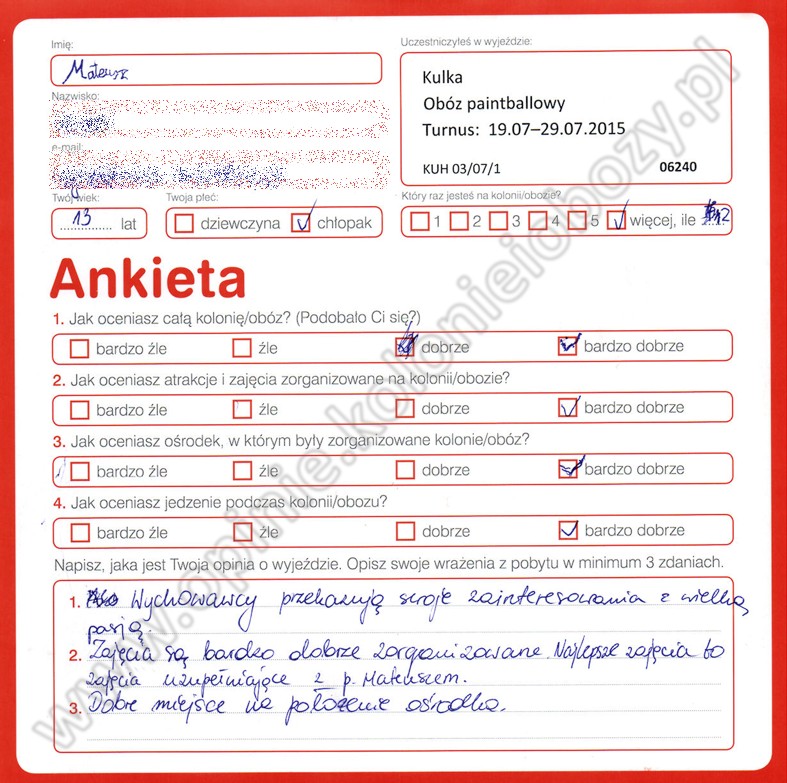 Imię:
Mateusz
Uczestniczyłeś w wyjeździe:
Kulka
Obóz paintballowy
Turnus: 19.07–29.07.2015
KUH 03/07/1 06240
Nazwisko:
e-mail:
Twój wiek:
13 lat
Twoja płeć:
dziewczyna chłopak
Który raz jesteś na kolonii/obozie?
1 2 3 4 5 więcej, ile 12
Ankieta
1. Jak oceniasz całą kolonię/obóz? (Podobało Ci się?)
bardzo źle źle dobrze bardzo dobrze
2. Jak oceniasz atrakcje i zajęcia zorganizowane na kolonii/obozie?
bardzo źle źle dobrze bardzo dobrze
3. Jak oceniasz ośrodek, w którym były zorganizowane kolonie/obóz?
bardzo źle źle dobrze bardzo dobrze
4. Jak oceniasz jedzenie podczas kolonii/obozu?
bardzo źle źle dobrze bardzo dobrze
Napisz, jaka jest Twoja opinia o wyjeździe. Opisz swoje wrażenia z pobytu w minimum 3 zdaniach.
1. Wychowawcy przekazują swoje zainteresowania z wielką
pasją.
2. Zajęcia są bardzo dobrze zorganizowane. Najlepsze zajęcia to
zajęcia uzupełniające z p. Mateuszem.
3. Dobre miejsce na położenie ośrodka.
www.opinie.kolonieiobozy.pl